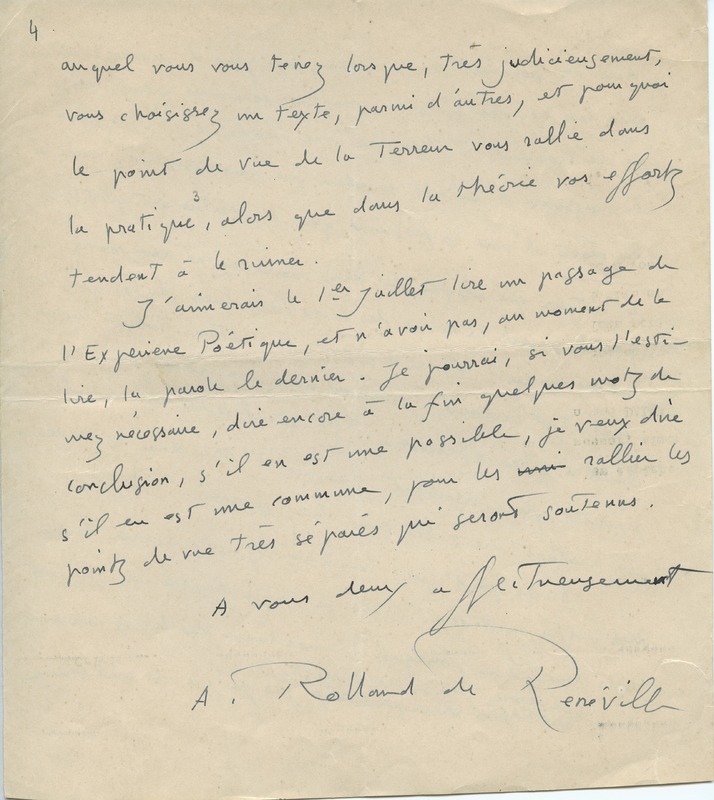 4
auquel vous vous tenez lorsque, très judicieusement,
vous choisissez un texte, parmi d'autres, et pourquoi
le point de vue de la Terreur vous rallie dans
la pratique ³, alors que dans la théorie vos efforts
tendent à le ruiner.
J'aimerais le 1er Juillet lire un passage de
l'Expérience Poétique, et n'avoir pas, au moment de le
lire, la parole le dernier. Je pourrai, si vous l'esti-
mez nécessaire, dire encore à la fin quelques mots de
conclusion, s'il en est une possible, je veux dire
s'il en est une commune, pour les rallier les
points de vue très séparés qui seront soutenus.
A vous deux affectueusement
A. Rolland de Renéville